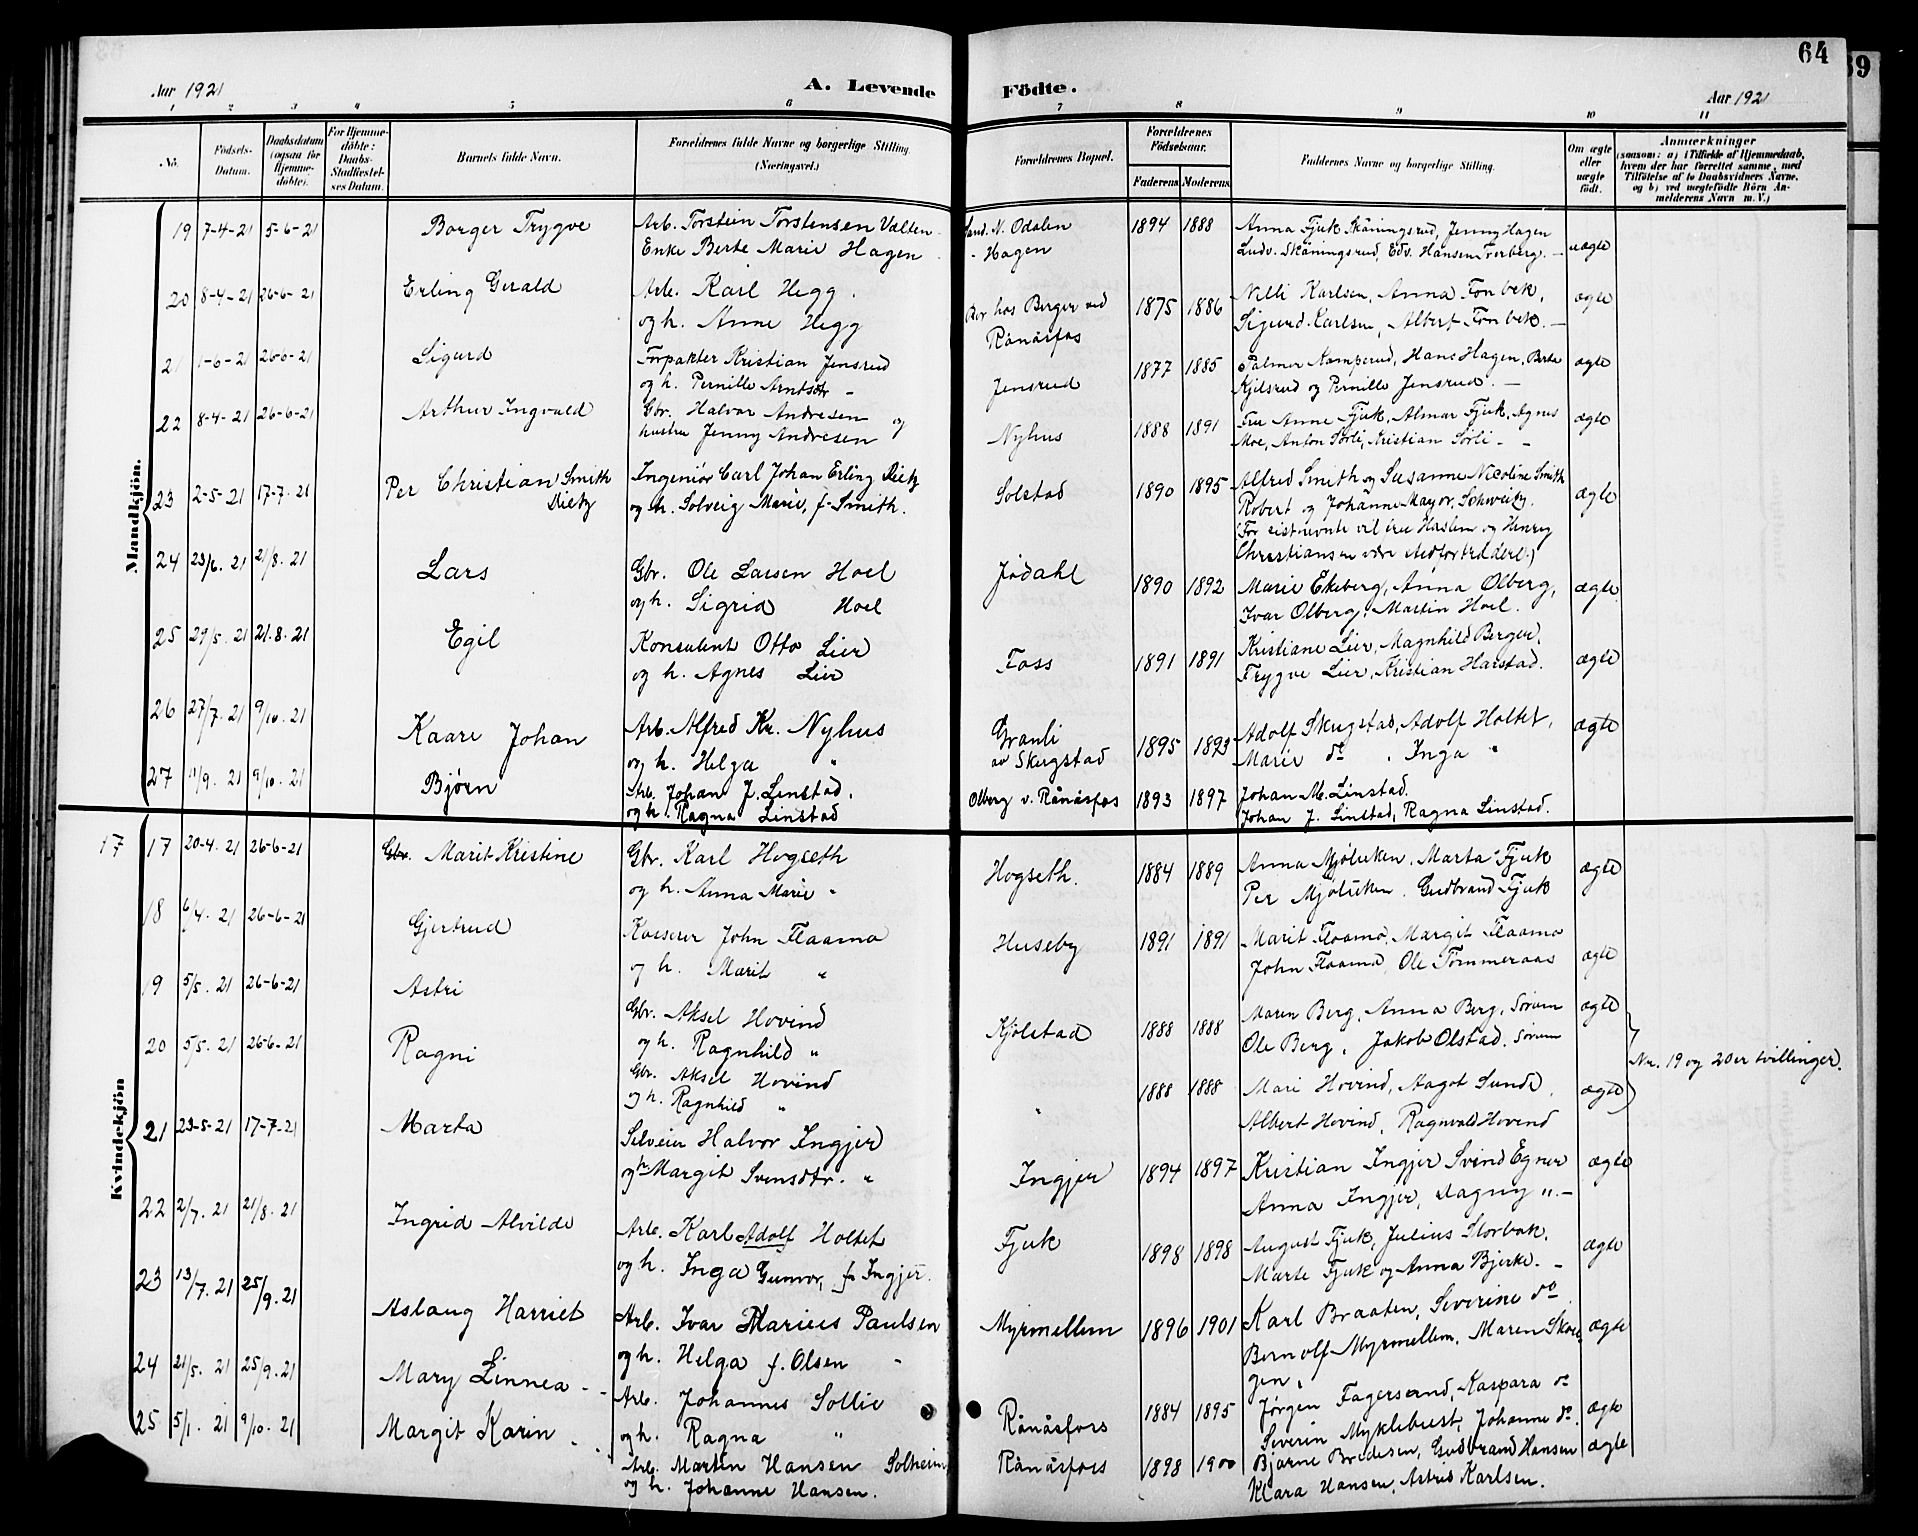 64
39
Aar 1921
A. Levende
Födte.
Aar 1921
1 2 3 4 5 6 7 8 9 10 11
No.
Födsels-Datum.
Daabsdatum (ogsaa for Hjemme-döbte).
For Hjemme-döbte: Daabs-Stadfæstelses Datum.
Barnets fulde Navn.
Forældrenes fulde Navne og borgerlige Stilling (Næringsvei.)
Forældrenes Bopæl.
Forældrenes Födselsaar.
Faderens Moderens
Faddernes Navne og borgerlige Stilling.
Om ægte eller uægte födt.
Anmærkninger
(saasom: a) i Tilfælde af Hjemmedaab, hvem der har forrettet samme, med Tilföielse af to Daabsvidners Navne, og b) ved uægtefödte Börn Anmelderens Navn m. V.)
Mandkjön.
19 7-4-21 5-6-21 Borger Trygve Arb. Torstein Torstensen Valten N. Odalen 1894 1888 Anna Fjuk Skåningsrud, Jenny Hagen uægte
Enke Berte Marie Hagen - Hagen Ludv. Skåningsrud, Edv. Hansen
20 8-4-21 26-6-21 Erling Gerald Arb. Karl Hegg. Bor hos Berger ved 1875 1886 Nelli Karlsen, Anna Fonbek, ægte
og h. Anne Hegg Rånåsfos Sigurd Karlsen, Albert Fonbek. -
21 1-6-21 26-6-21 Sigurd Forpakter Kristian Jensrud 1877 1885 Palmer Kamperud, Hans Hagen, Berte ægte
og h. Pernille Arntsdtr - Jensrud Kjelsrud og Pernille Jensrud. -
22 8-4-21 26-6-21 Arthur Ingvald Gbr. Halvor Andresen og Nyhus 1888 1891 Fru Anne Fjuk, Almar Fjuk, Agnes ægte
hustru Jenny Andresen Moe, Anton Sørli, Kristian Sørli - -
23 2-5-21 17-7-21 Per Christian Smith Dietz Ingeniør Carl Johan Erling Dietz Solstad 1890 1895 Alfred Smith og Susanne Nicoline Smith ægte
og h. Solveig Marie, f. Smith. Robert og Johanne Mayor, Schweitz.
(For sistnevnte vil frue Haslem og Henry
Christiansen være stedfortrædere.)
24 23/6. 21 21/8. 21 Lars Gbr. Ole Larsen Hoel Jødahl 1890 1892 Marie Ekeberg, Anna Olberg, ægte
og h. Sigrid Hoel Ivar Olberg, Martin Hoel.
25 29/5. 21 21.8.21 Egil Konsulent Otto Lier Foss 1891 1891 Kristiane Lier, Magnhild Berger, ægte
og h. Agnes Lier Trygve Lier, Kristian Harstad.
26 27/7. 21 9/10. 21 Kaare Johan Arb. Alfred Kr. Nyhus Granli 1895 1893 Adolf Skugstad, Adolf Holtet, ægte
og h. Helga " av Skugstad Marie do. Inga "
27 11/9. 21 9/10. 21 Bjørn Arb. Johan J. Linstad. Olberg v. Rånåsfos 1893 1897 Johan M. Linstad.
og h. Ragna Linstad Johan J. Linstad, Ragna Linstad.
Kvindekjön
17 17 20-4. 21 26-6-21 Gbr. Marit Kristine Gbr. Karl Hogseth Hogseth. 1884 1889 Anna Mjøliken, Marta Fjuk ægte
og h. Anna Marie " Per Mjøliken, Gudbrand Fjuk
18 6/4. 21 26-6-21 Gjertrud Kasserer John Flaamo Huseby 1891 1891 Marit Flaamo, Margit Flaamo ægte
og h. Marit " John Flaamo, Ole Tømmeraas
19 5/5. 21 26-6-21 Astri Gbr. Aksel Hovind Kjølstad 1888 1888 Maren Berg, Anna Berg, Sørum ægte
og h. Ragnhild " Ole Berg, Jakob Olstad. Sørum
Nr. 19 og 20 er tvillinger.
20 5/5. 21 26-6-21 Ragni Gbr. Aksel Hovind " 1888 1888 Mari Hovind, Aagot Sunde, ægte
og h. Ragnhild " Albert Hovind, Ragnvald Hovind
21 23-5-21 17-7-21 Marta Selveier Halvor Ingjer Ingjer 1894 1897 Kristian Ingjer Svend Egner ægte
og h. Margit Svensdtr. " Anna Ingjer, Dagny ". -
22 2/7. 21 21/8. 21 Ingrid Alvilde Arb. Karl Adolf Holtet Fjuk 1898 1898 August Fjuk, Julius Storbak, ægte
og h. Inga Gunvor, f. Ingjer. Marte Fjuk og Anna Bjerke. -
23 13/7. 21 25/9. 21 Aslaug Harriet Arb. Ivar Marius Paulsen Myrmellem 1896 1901 Karl Braaten, Severine do ægte
og h. Helga f. Olsen - Bernolf Myrmellem, Maren Skou
gen,
24 21/5. 21 25/9. 21 Mary Linnea - - Arb. Johannes Sollie Rånåsfors 1884 1895 Jørgen Fagersand, Kaspara do ægte
og h. Ragna " Severin Myklebust, Johanne do.
25 5/1. 21 9/10. 21 Margit Karin - Arb. Martin Hansen Solheim Rånåsfors 1898 1900 Bjarne Bredesen, Gudbrand Hansen ægte
og h. Johanne Hansen. Klara Hansen, Astrid Karlsen.